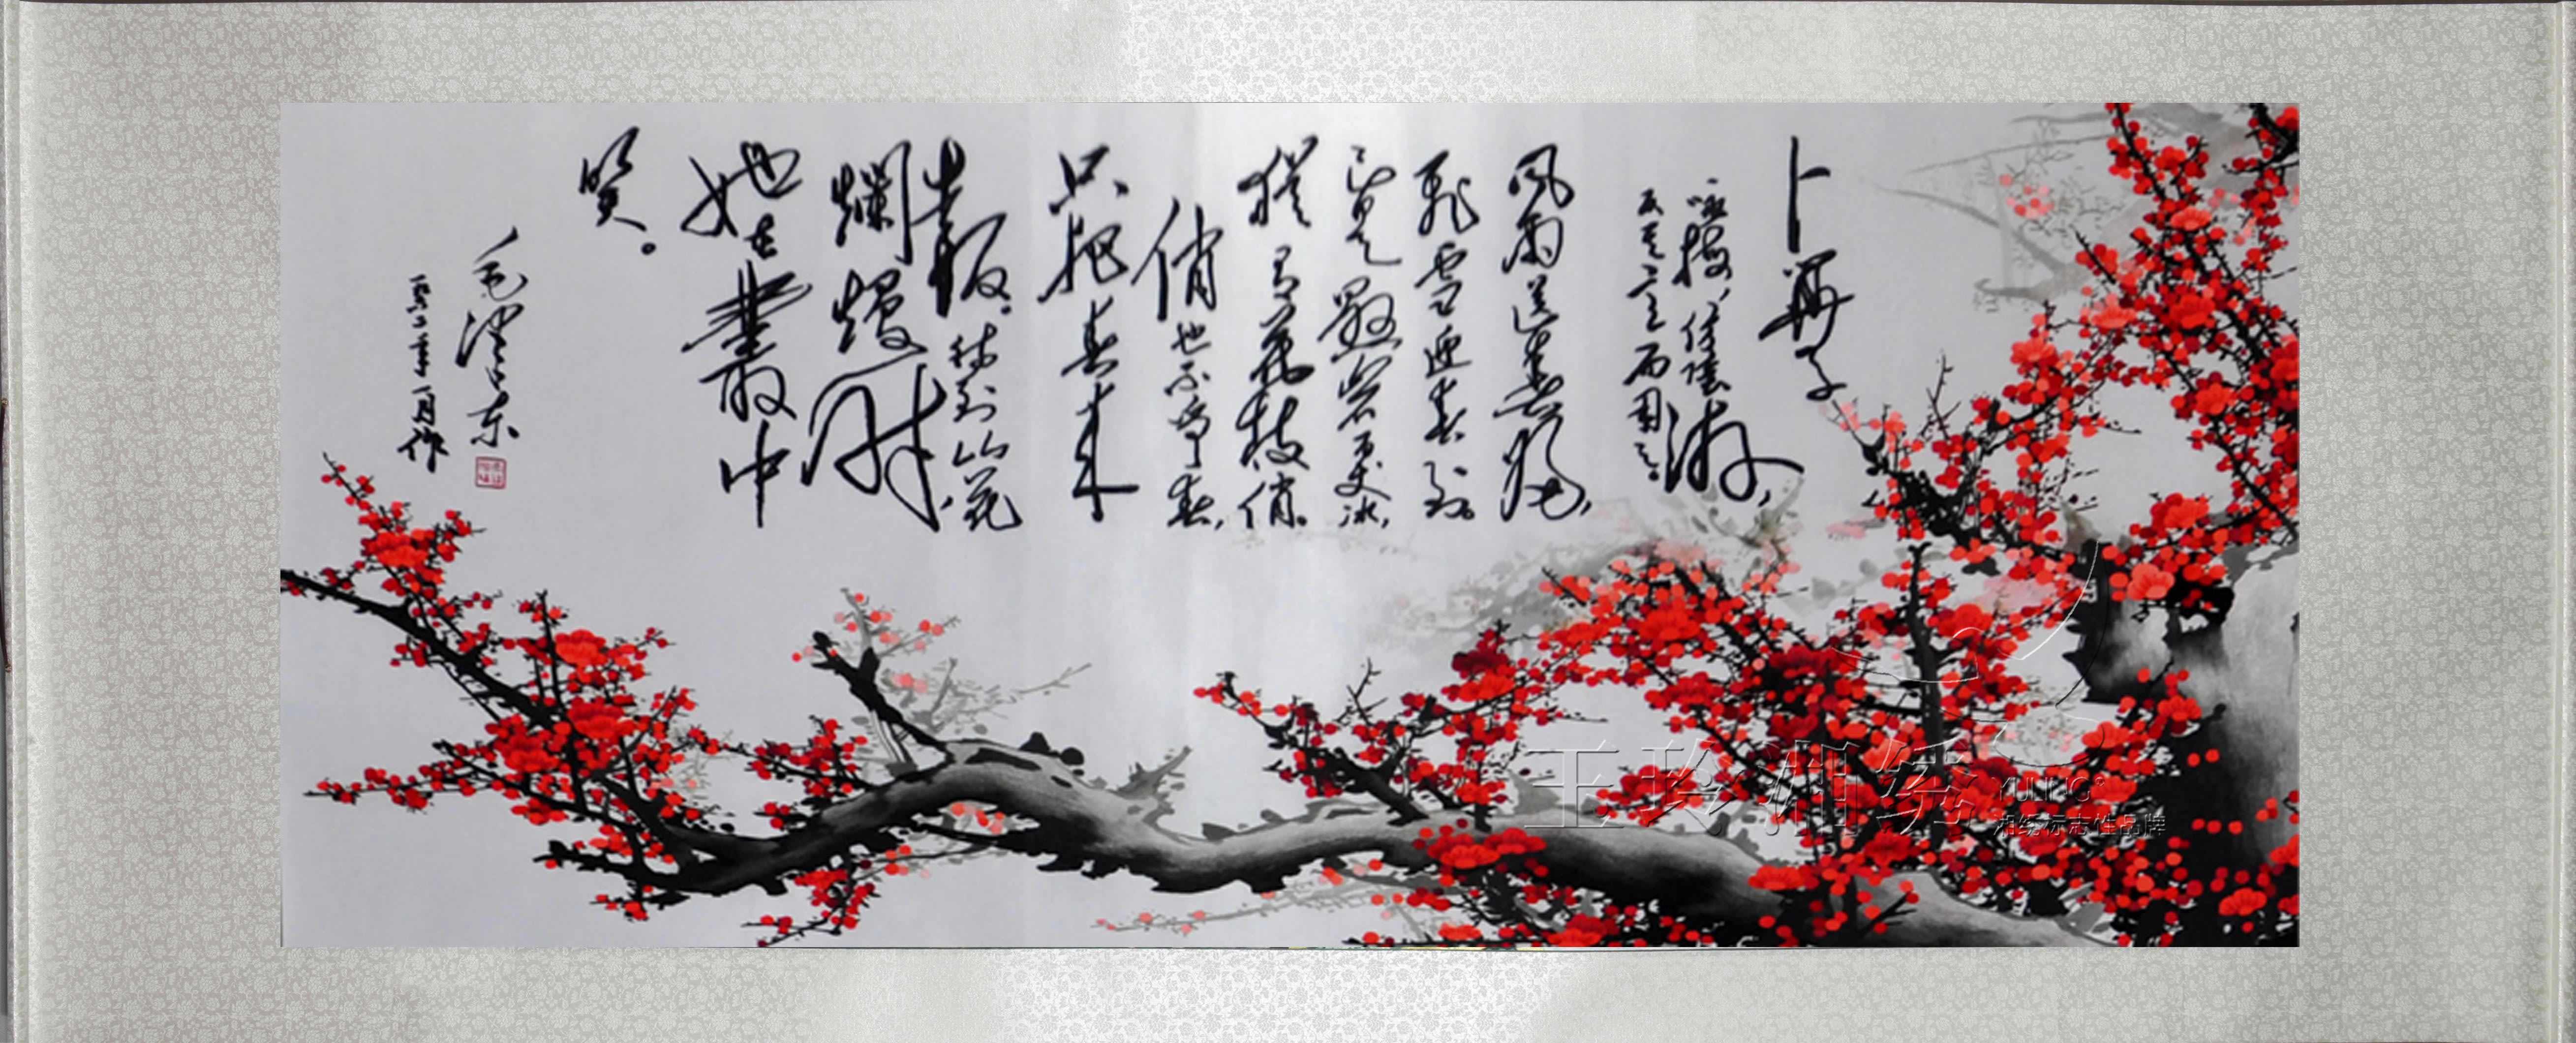 卜算子
咏梅，仿陆游，
反其意而用之。
风雨送春归，
飞雪迎春到。
已是悬崖百丈冰，
犹有花枝俏。
俏也不争春，
只把春来
报。待到山花
烂漫时，
她在丛中
笑。
毛泽东
一九六二年十一月作
玉玲湘绣
YULING®
湘绣标志性品牌